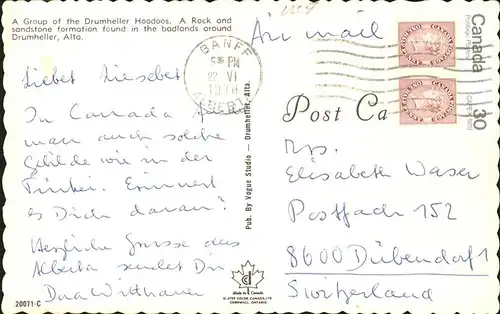 A Group of the Drumheller Hoodoos. A Rock and
sandstone formation found in the badlands around
Drumheller, Alta.
Air mail
BANFF
PM
22 VI
ALBERTA
Canada
30
Liebst Liesebet
In Canada
man auch solche
Gebilde wie in der
Türkei. Erinnert
es Dich daran?
Herzliche Grüsse aus
Alberta sendet Dir
Pub. By Vogue Studio — Drumheller, Alta.
Post Ca
Mrs.
Elisabeth Waser
Postfach 152
8600 Dübendorf 1
Switzerland
Made in Canada
CORNWALL, ONTARIO
20071-C